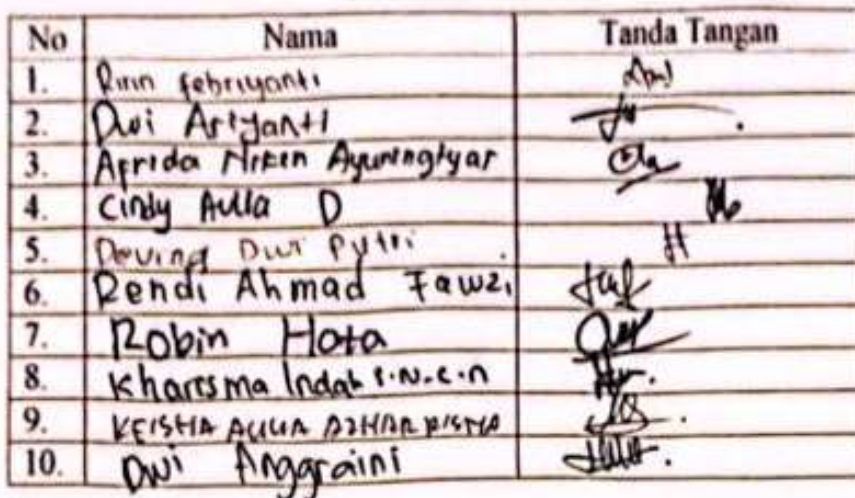 No Nama Tanda Tangan
1. Ririn febriyanti
2. Dwi Ariyanti
3. Afrida Niken Ayuningtyar
4. Cindy Aulia D
5. Devina Dwi Putri
6. Rendi Ahmad Fawzi
7. Robin Hota
8. Kharisma Indah
9. KEISHA AULIA AZHAR
10. Dwi Anggraini